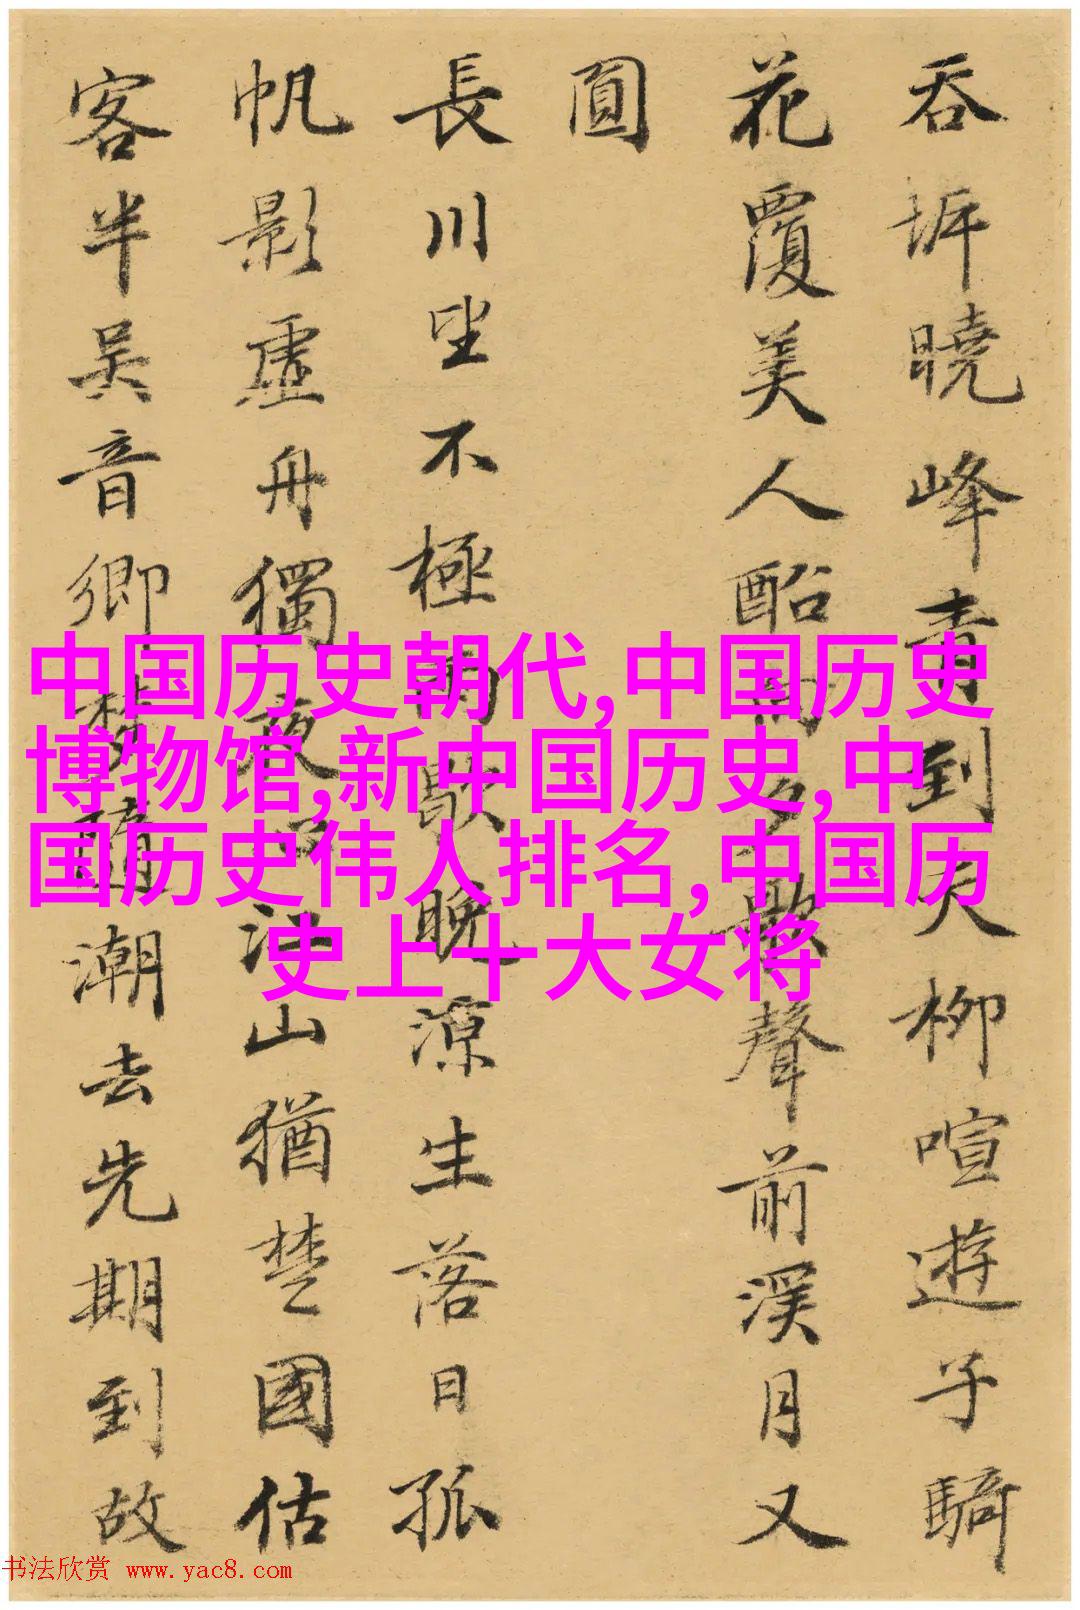 吞坼曉峰青到天柳喧遊子騎
花覆美人船向夕歌聲前溪月又
圓
長川坐不極雨歇晚涼生落日孤
帆影虛舟獨夜江山猶楚國估
客半吳音鄉夢隨潮去先期到故
中国历史朝代,中国历史
博物馆,新中国历史,中
国历史伟人排名,中国历
史上十大女将
书法欣赏 www.yac8.com